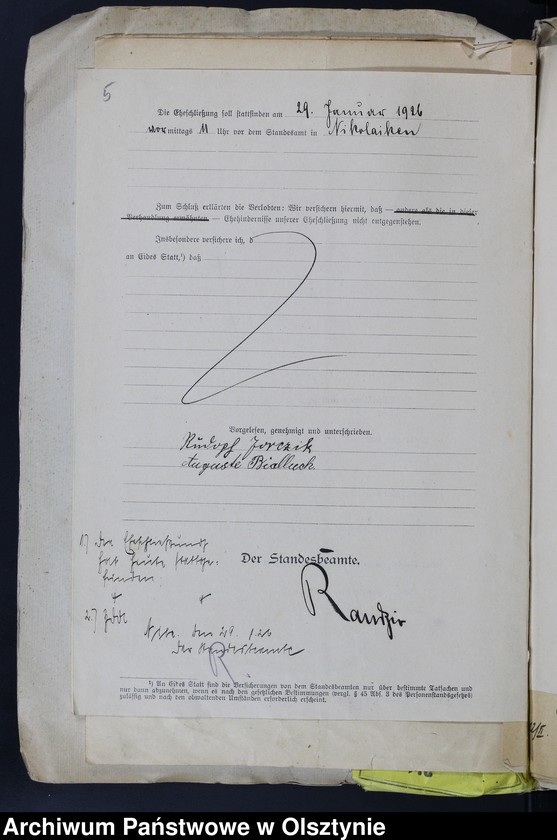 5
Die Eheschließung soll stattfinden am 29. Januar 1926
vormittags 11 Uhr vor dem Standesamt in Nikolaiken
Zum Schluß erklärten die Verlobten: Wir versichern hiermit, daß — andere als die in dieser
Verhandlung erwähnten — Ehehindernisse unserer Eheschließung nicht entgegenstehen.
Insbesondere versichere ich, d
an Eides Statt,¹) daß
Vorgelesen, genehmigt und unterschrieben.
Rudolf Jorczik
Auguste Bialluch
1) Die Eheschließung
hat heute stattge-
funden
Der Standesbeamte.
Randzir
2.) ZdA
Niko. den 29. 1.26
Der Standesbeamte
R
¹) An Eides Statt sind die Versicherungen von dem Standesbeamten nur über bestimmte Tatsachen und
nur dann abzunehmen, wenn es nach den gesetzlichen Bestimmungen (vergl. § 45 Abs. 3 des Personenstandsgesetzes)
zulässig und nach den obwaltenden Umständen erforderlich erscheint.
Archiwum Państwowe w Olsztynie